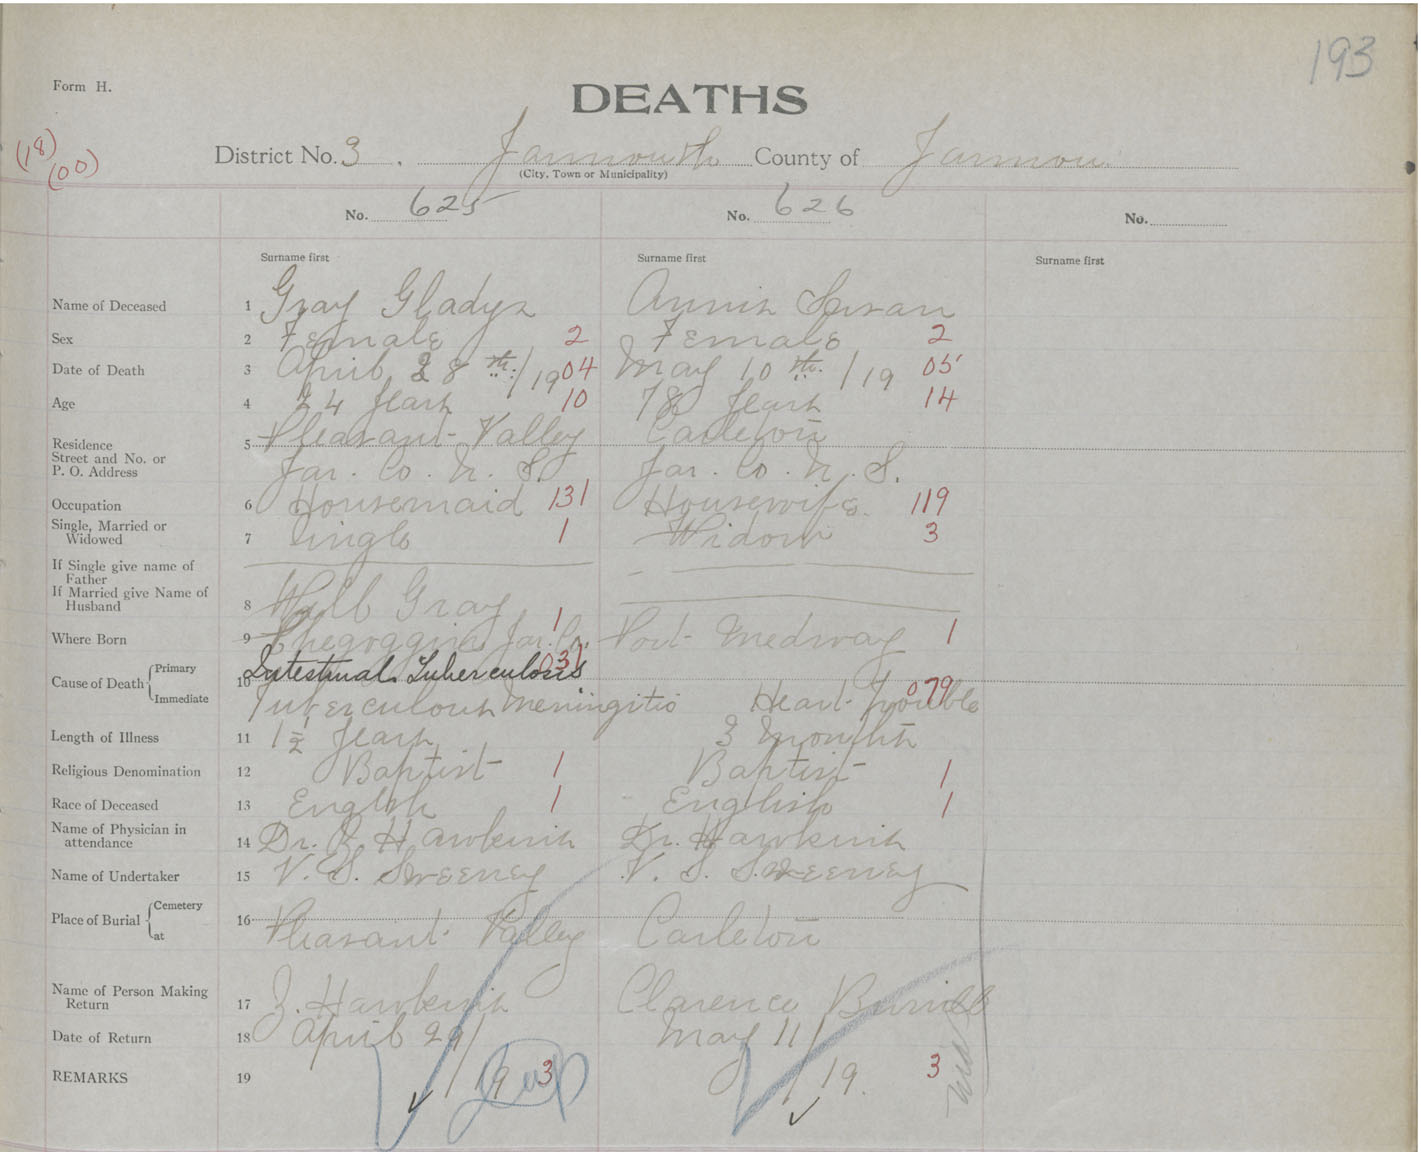 193
Form H.
DEATHS
(18)
(00)
District No. 3. Yarmouth County of Yarmou
(City, Town or Municipality)
No. 625 No. 626 No.
Surname first Surname first Surname first
Name of Deceased 1 Gray Gladys Annis Susan
Sex 2 Female 2 Female 2
Date of Death 3 April 28th/19 04 May 10th/19 05
Age 4 24 years 10 78 years 14
Residence 5 Pleasant Valley Carleton
Street and No. or
P. O. Address Yar. Co. N. S. Yar. Co. N. S.
Occupation 6 Housemaid 131 Housewife 119
Single, Married or
Widowed 7 Single 1 Widow 3
If Single give name of
Father
If Married give Name of
Husband 8 Gray
Where Born 9 Chegoggin Yar. Co. 1 Port Medway 1
Cause of Death Primary 10 Intestinal Tuberculosis 031
Immediate Tuberculous Meningitis Heart Trouble 079
Length of Illness 11 1½ years 3 months
Religious Denomination 12 Baptist 1 Baptist 1
Race of Deceased 13 English 1 English 1
Name of Physician in
attendance 14 Dr. Z Hawkins Dr. Hawkins
Name of Undertaker 15 V. S. Sweeney V. S. Sweeney
Place of Burial Cemetery 16
at Pleasant Valley Carleton
Name of Person Making
Return 17 Z. Hawkins Clarence
Date of Return 18 April 29/ May 11/
REMARKS 19 /19 3 /19. 3